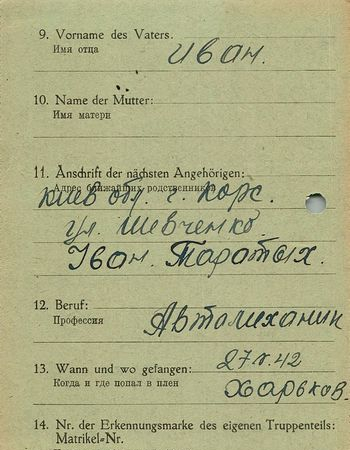 9. Vorname des Vaters.
Имя отца
Иван.
10. Name der Mutter:
Имя матери
11. Anschrift der nächsten Angehörigen:
Адрес ближайших родственников
Киев обл. г. Корс.
ул. Шевченко
Іван. Таратых.
12. Beruf:
Профессия
Автомиханик
13. Wann und wo gefangen:
Когда и где попал в плен
27 V. 42
Харьков.
14. Nr. der Erkennungsmarke des eigenen Truppenteils:
Matrikel-Nr.